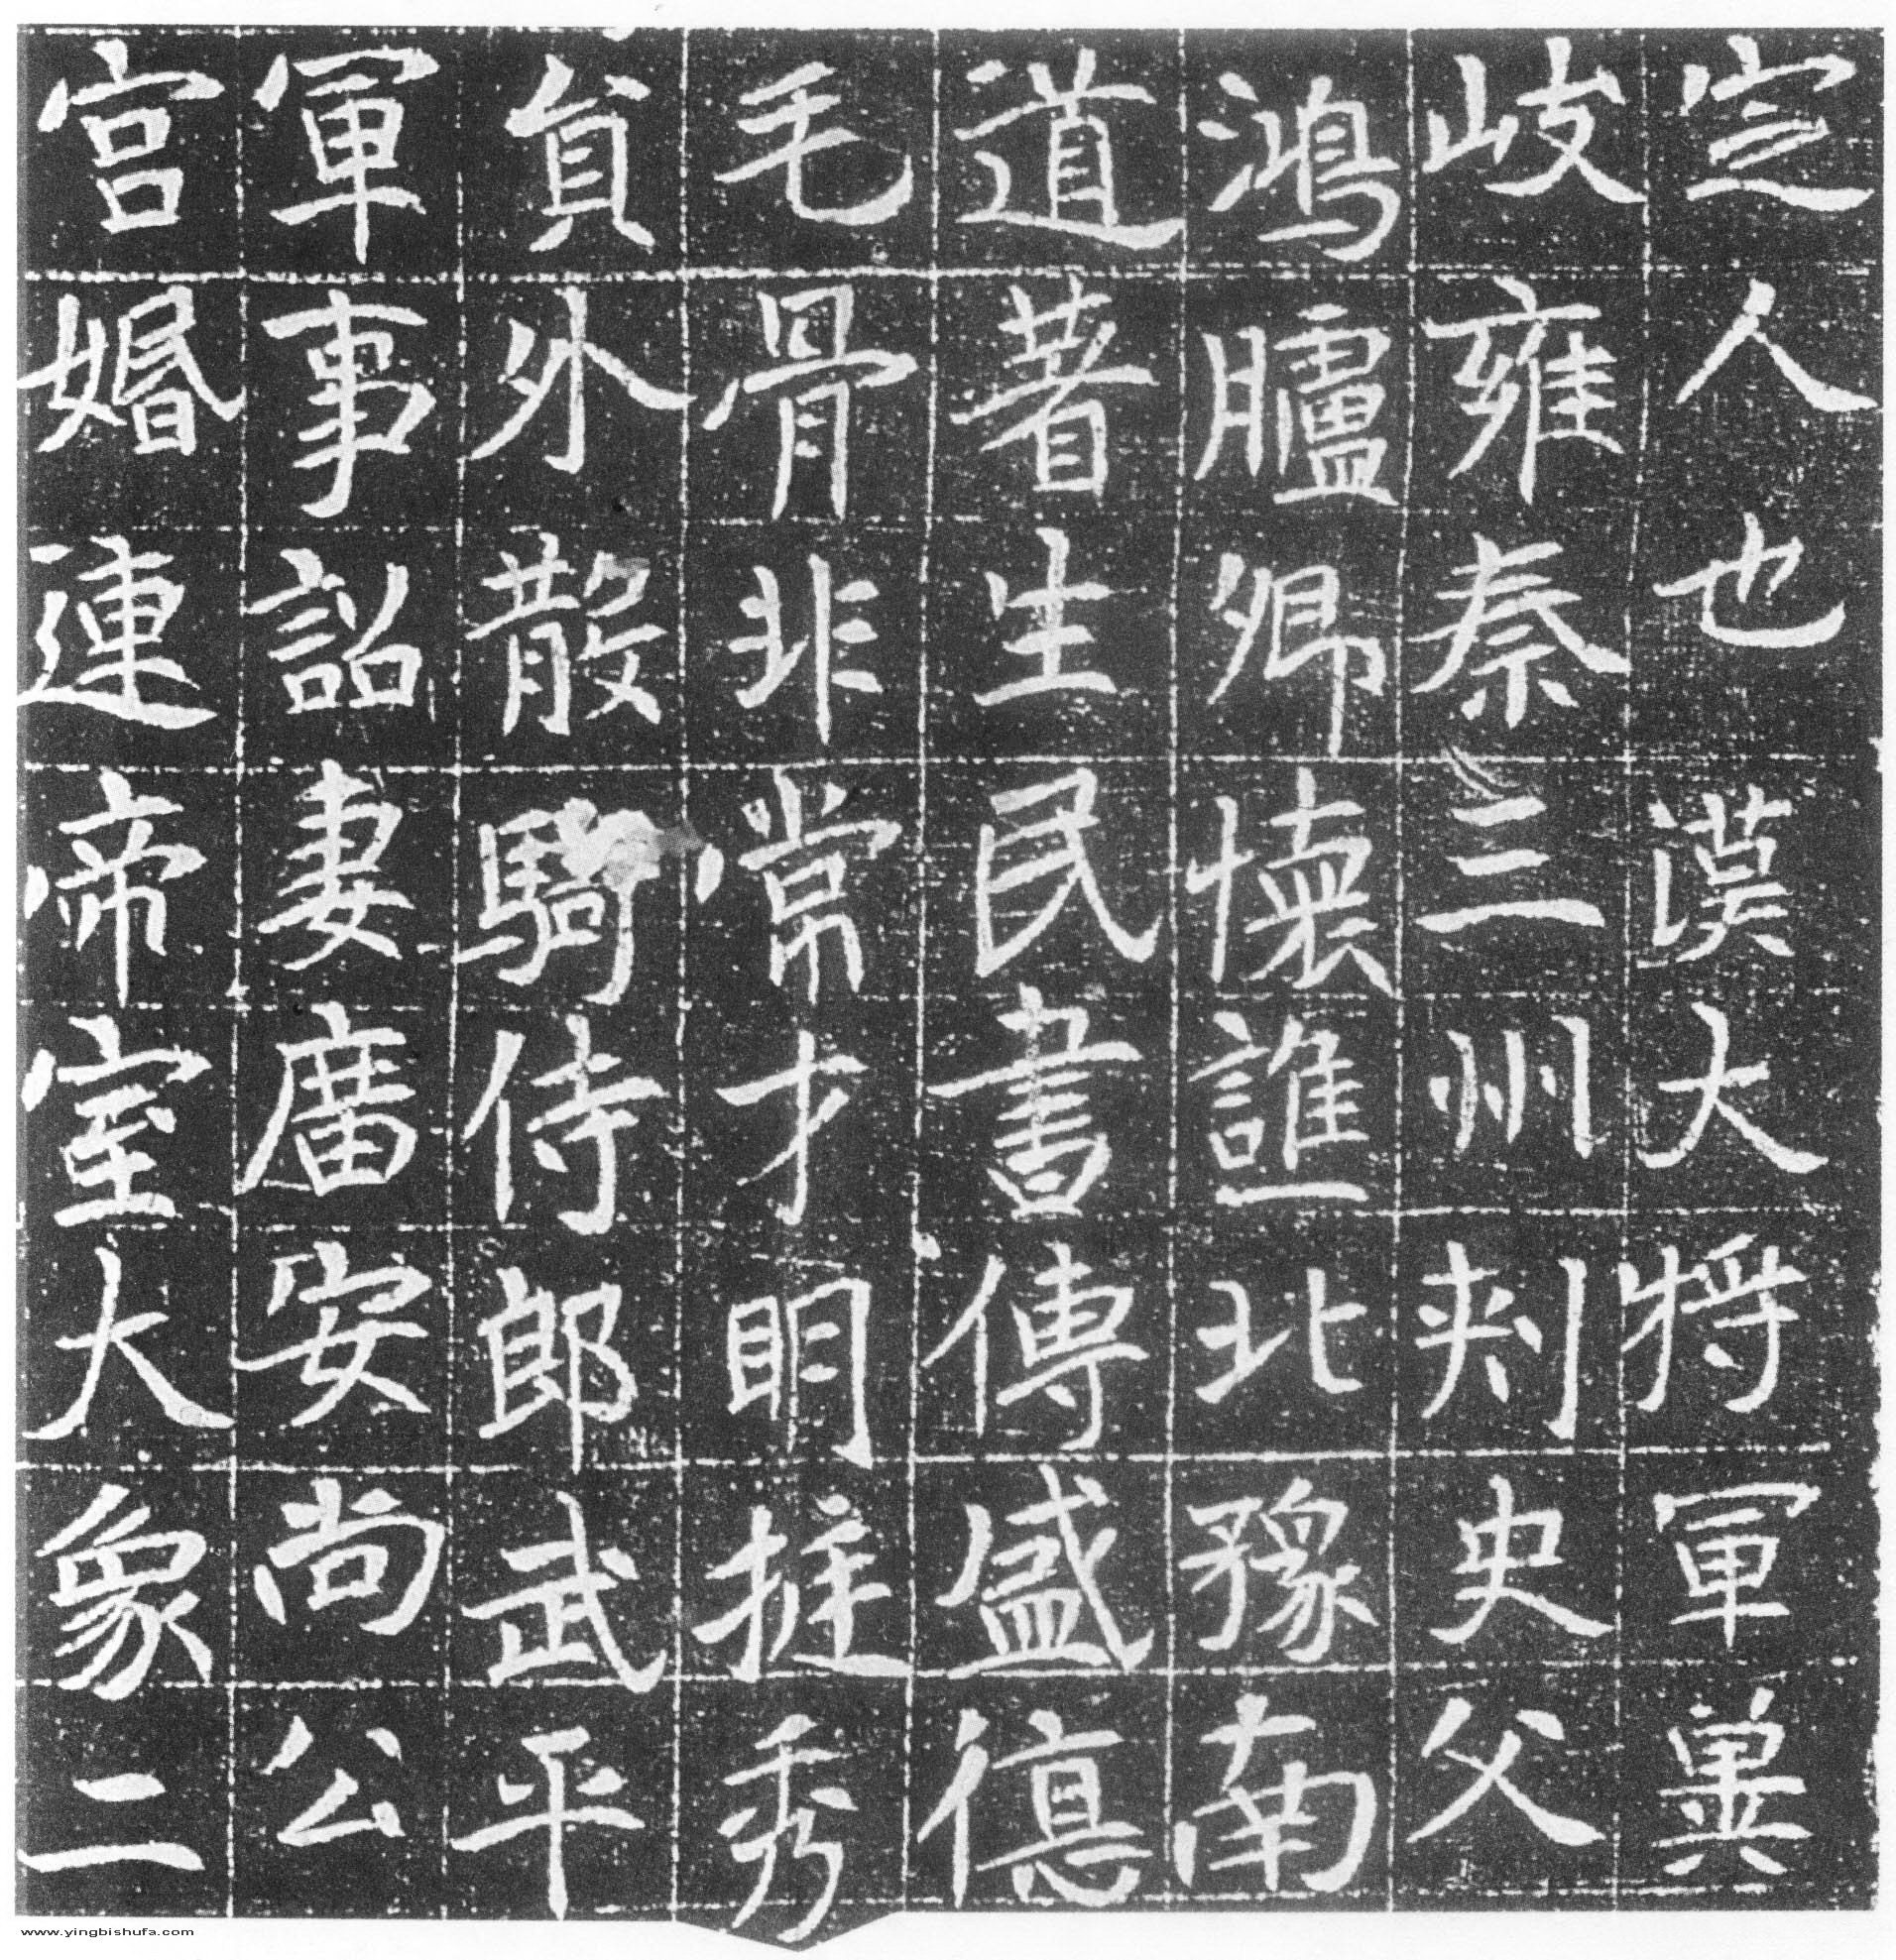 定人也漢大将軍冀
岐雍秦三州刾史父
鴻臚卿懷譙北豫南
道著生民書傳盛德
毛骨非常才明挺秀
員外散騎侍郎武平
軍事詔妻廣安尚公
宮婚連帝室大象二
www.yingbishufa.com